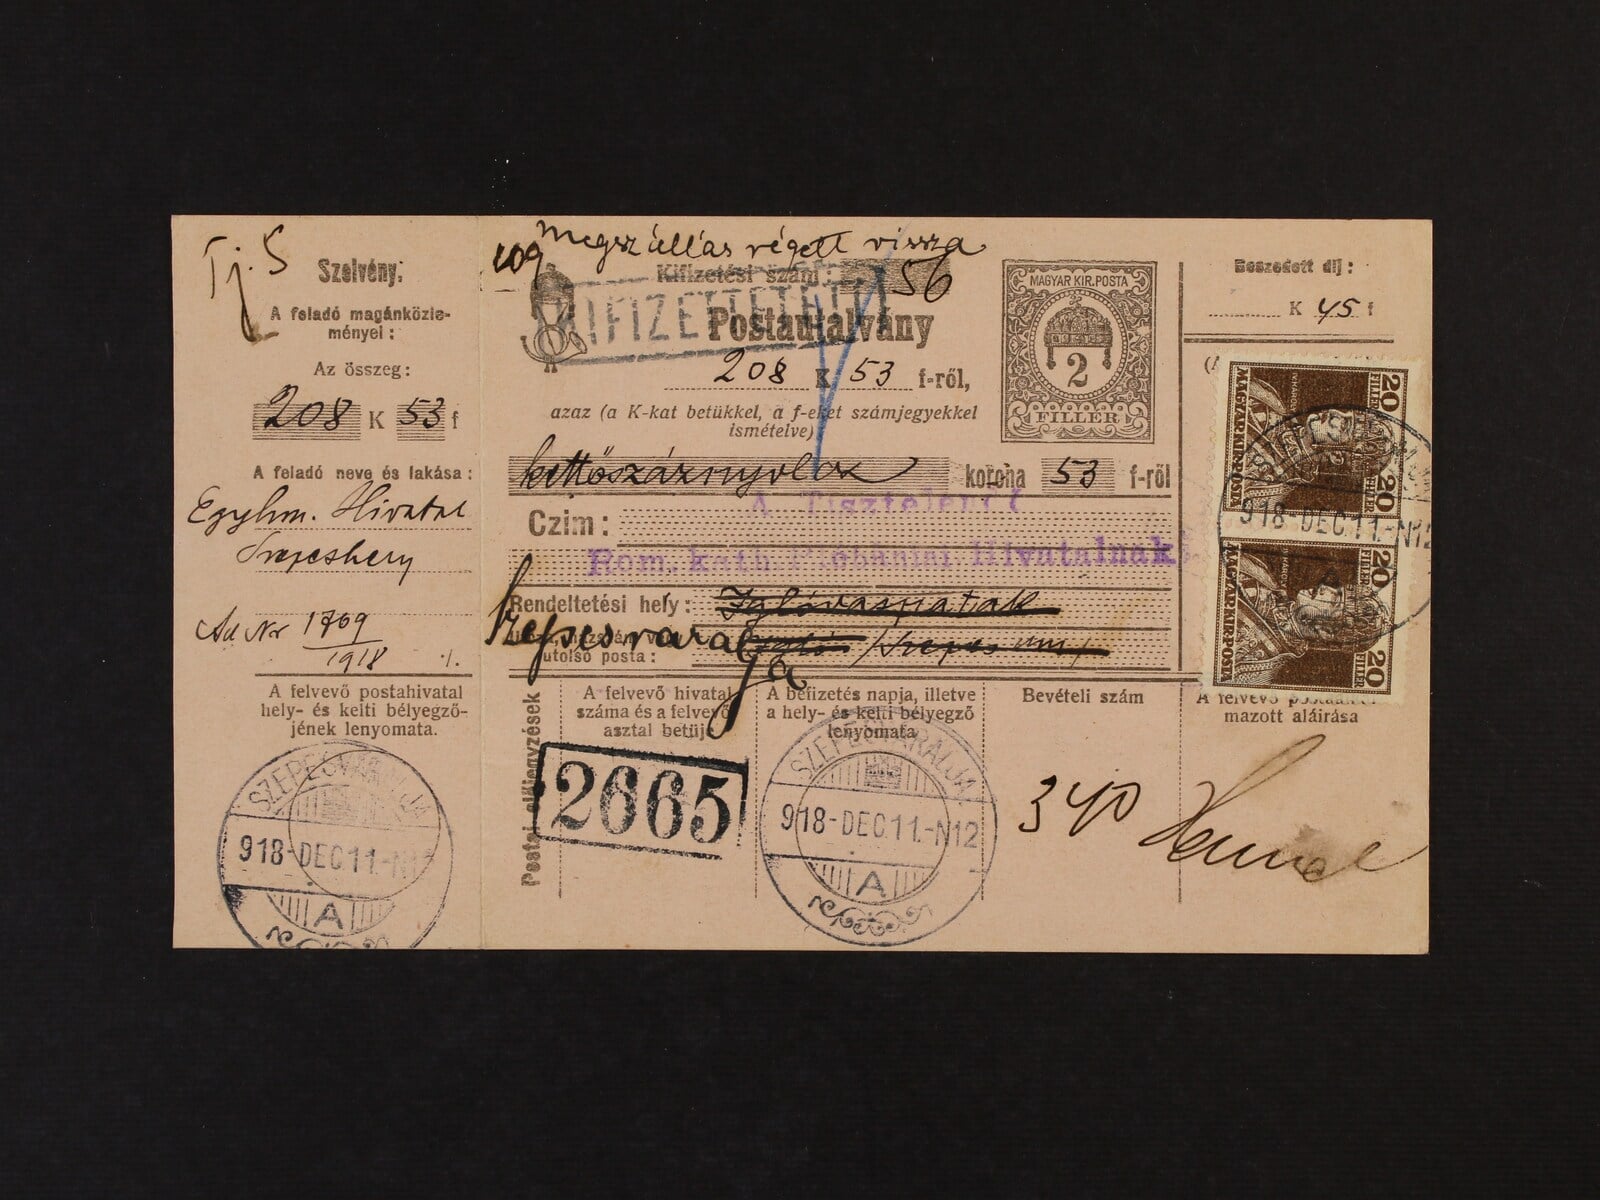 Tj. 5
Szelvény.
A feladó magánközle-
ményei :
Az összeg:
208 K 53 f
A feladó neve és lakása :
Egyhm. Hivatal
Szepeshely
Ad Nr 1769
1918 ./.
A felvevő postahivatal
hely- és kelti bélyegző-
jének lenyomata.
SZEPESVÁRALJA
918-DEC.11.-N12
A
109
Megszállás végett vissza
Kifizetési szám : 56
KIFIZETTETETT
Postautalvány
208 K 53 f-ről,
azaz (a K-kat betükkel, a f-eket számjegyekkel
ismételve)
kettőszáznyolcz korona 53 f-ről
A Tisztelendő
Czim :
Rom. kath. Plébániai Hivatalnak
Rendeltetési hely : Iglóvaspatak
Szepesváralja
utolsó posta : Igló / Szepes um /
MAGYAR KIR. POSTA
2
FILLÉR
Beszedett dij :
K 45 f
20 FILLÉR 20
MAGYAR KIR. POSTA
20 FILLÉR 20
MAGYAR KIR. POSTA
918-DEC.11.-N12
Postai följegyzések
A felvevő hivatal
száma és a felvevő
asztal betüje
2665
A befizetés napja, illetve
a hely- és kelti bélyegző
lenyomata
SZEPESVÁRALJA
918-DEC.11.-N12
A
Bevételi szám
340
A felvevő
mazott aláirása